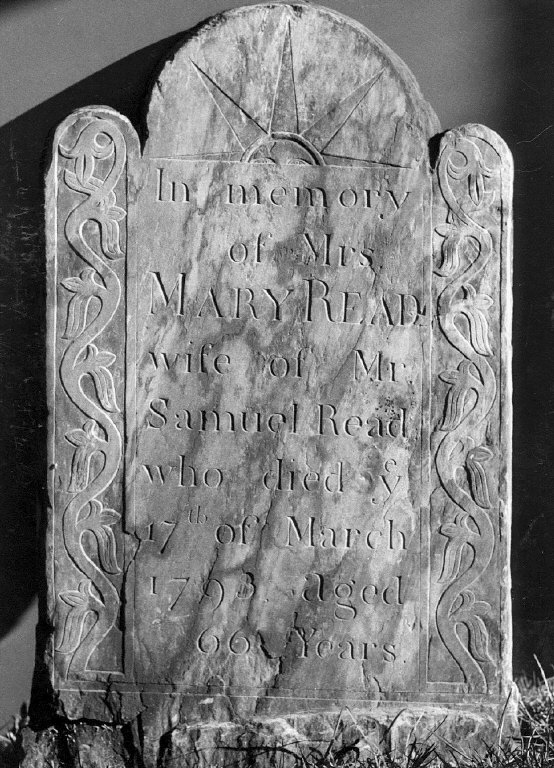 In memory
of Mrs.
MARY READ
wife of Mr.
Samuel Read
who died yͤ
17th of March
1798. aged
66 Years.